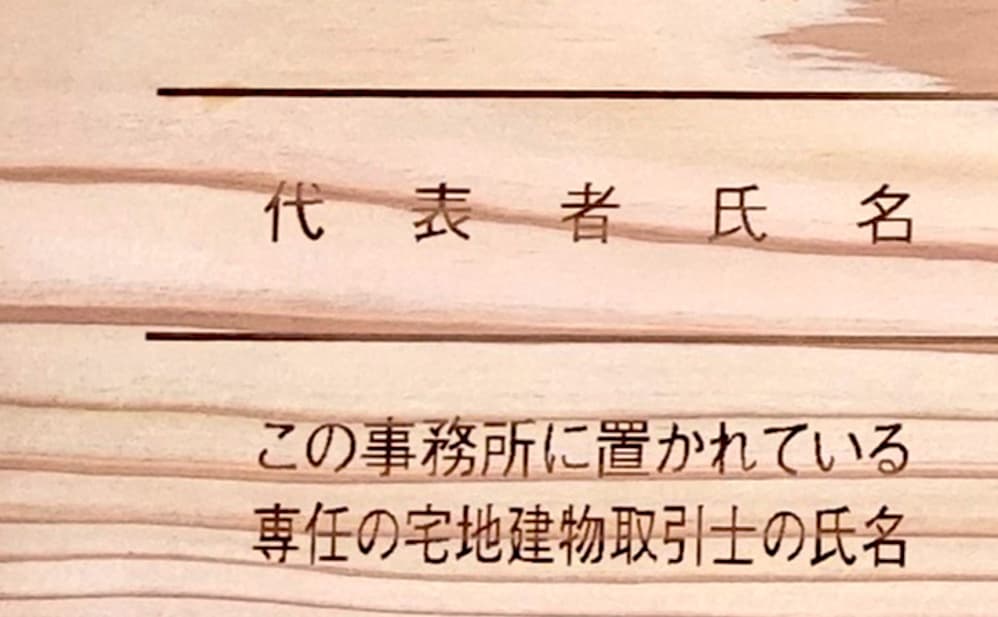 代表者氏名
この事務所に置かれている
専任の宅地建物取引士の氏名